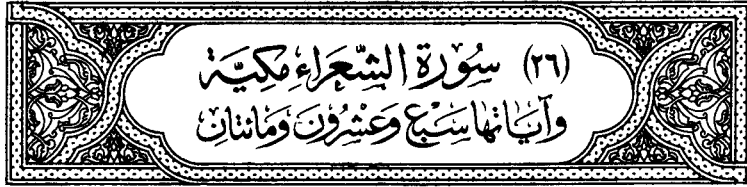 (٢٦) سُوْرَةُ الشُّعَرَاءِ مَكِيَّة
وَآيَاتهَا سَبْعٌ وَعِشْرُونَ وَمَائتَانِ